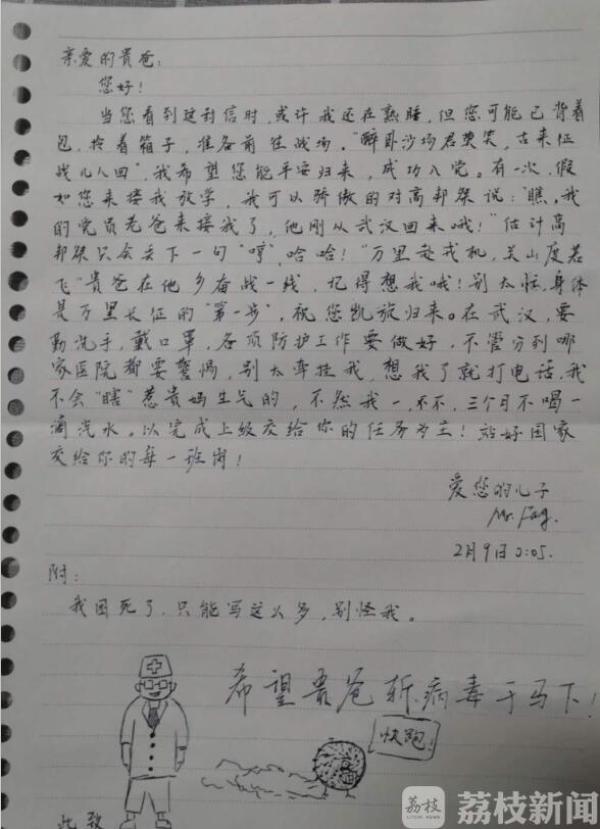 亲爱的贵爸：
您好！
当您看到这封信时，或许我还在熟睡，但您可能已背着
包，拎着箱子，准备前往战场。“醉卧沙场君莫笑，古来征
战几人回”，我希望您能平安归来，成功入党。有一次，假
如您来接我放学，我可以骄傲的对高邦桀说：“瞧，我
的党员老爸来接我了，他刚从武汉回来哦！”估计高
邦桀只会丢下一句“哼”，哈哈！“万里赴戎机，关山度若
飞”贵爸在他乡奋战一线，记得想我哦！别太忙，身体
是万里长征的“第一步”，祝您凯旋归来。在武汉，要
勤洗手，戴口罩，各项防护工作要做好，不管分到哪
家医院都要警惕，别太牵挂我，想我了就打电话，我
不会“瞎”惹贵妈生气的，不然我一，不不，三个月不喝一
滴汽水。以完成上级交给你的任务为主！站好国家
交给你的每一班岗！
爱您的儿子
Mr. Fang.
2月9日0:05.
附：
我困死了，只能写这么多，别怪我。
希望贵爸斩病毒于马下！
快跑！
此致
荔枝
LITCHI NEWS
荔枝新闻